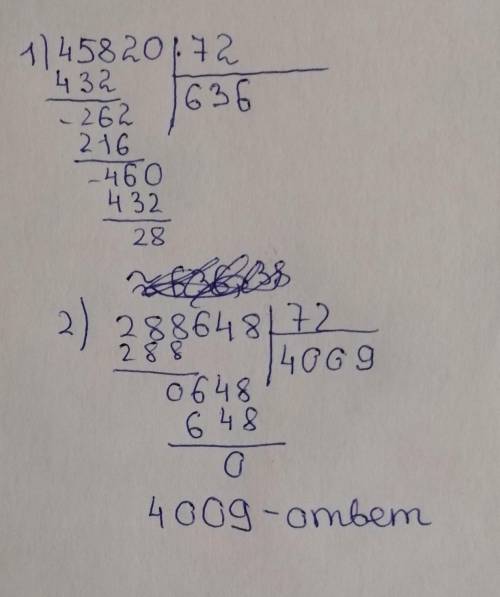 1) 45820 : 72
432 636
-262
216
-460
432
28
2) 288648 72
288 4009
0648
648
0
4009 - ответ